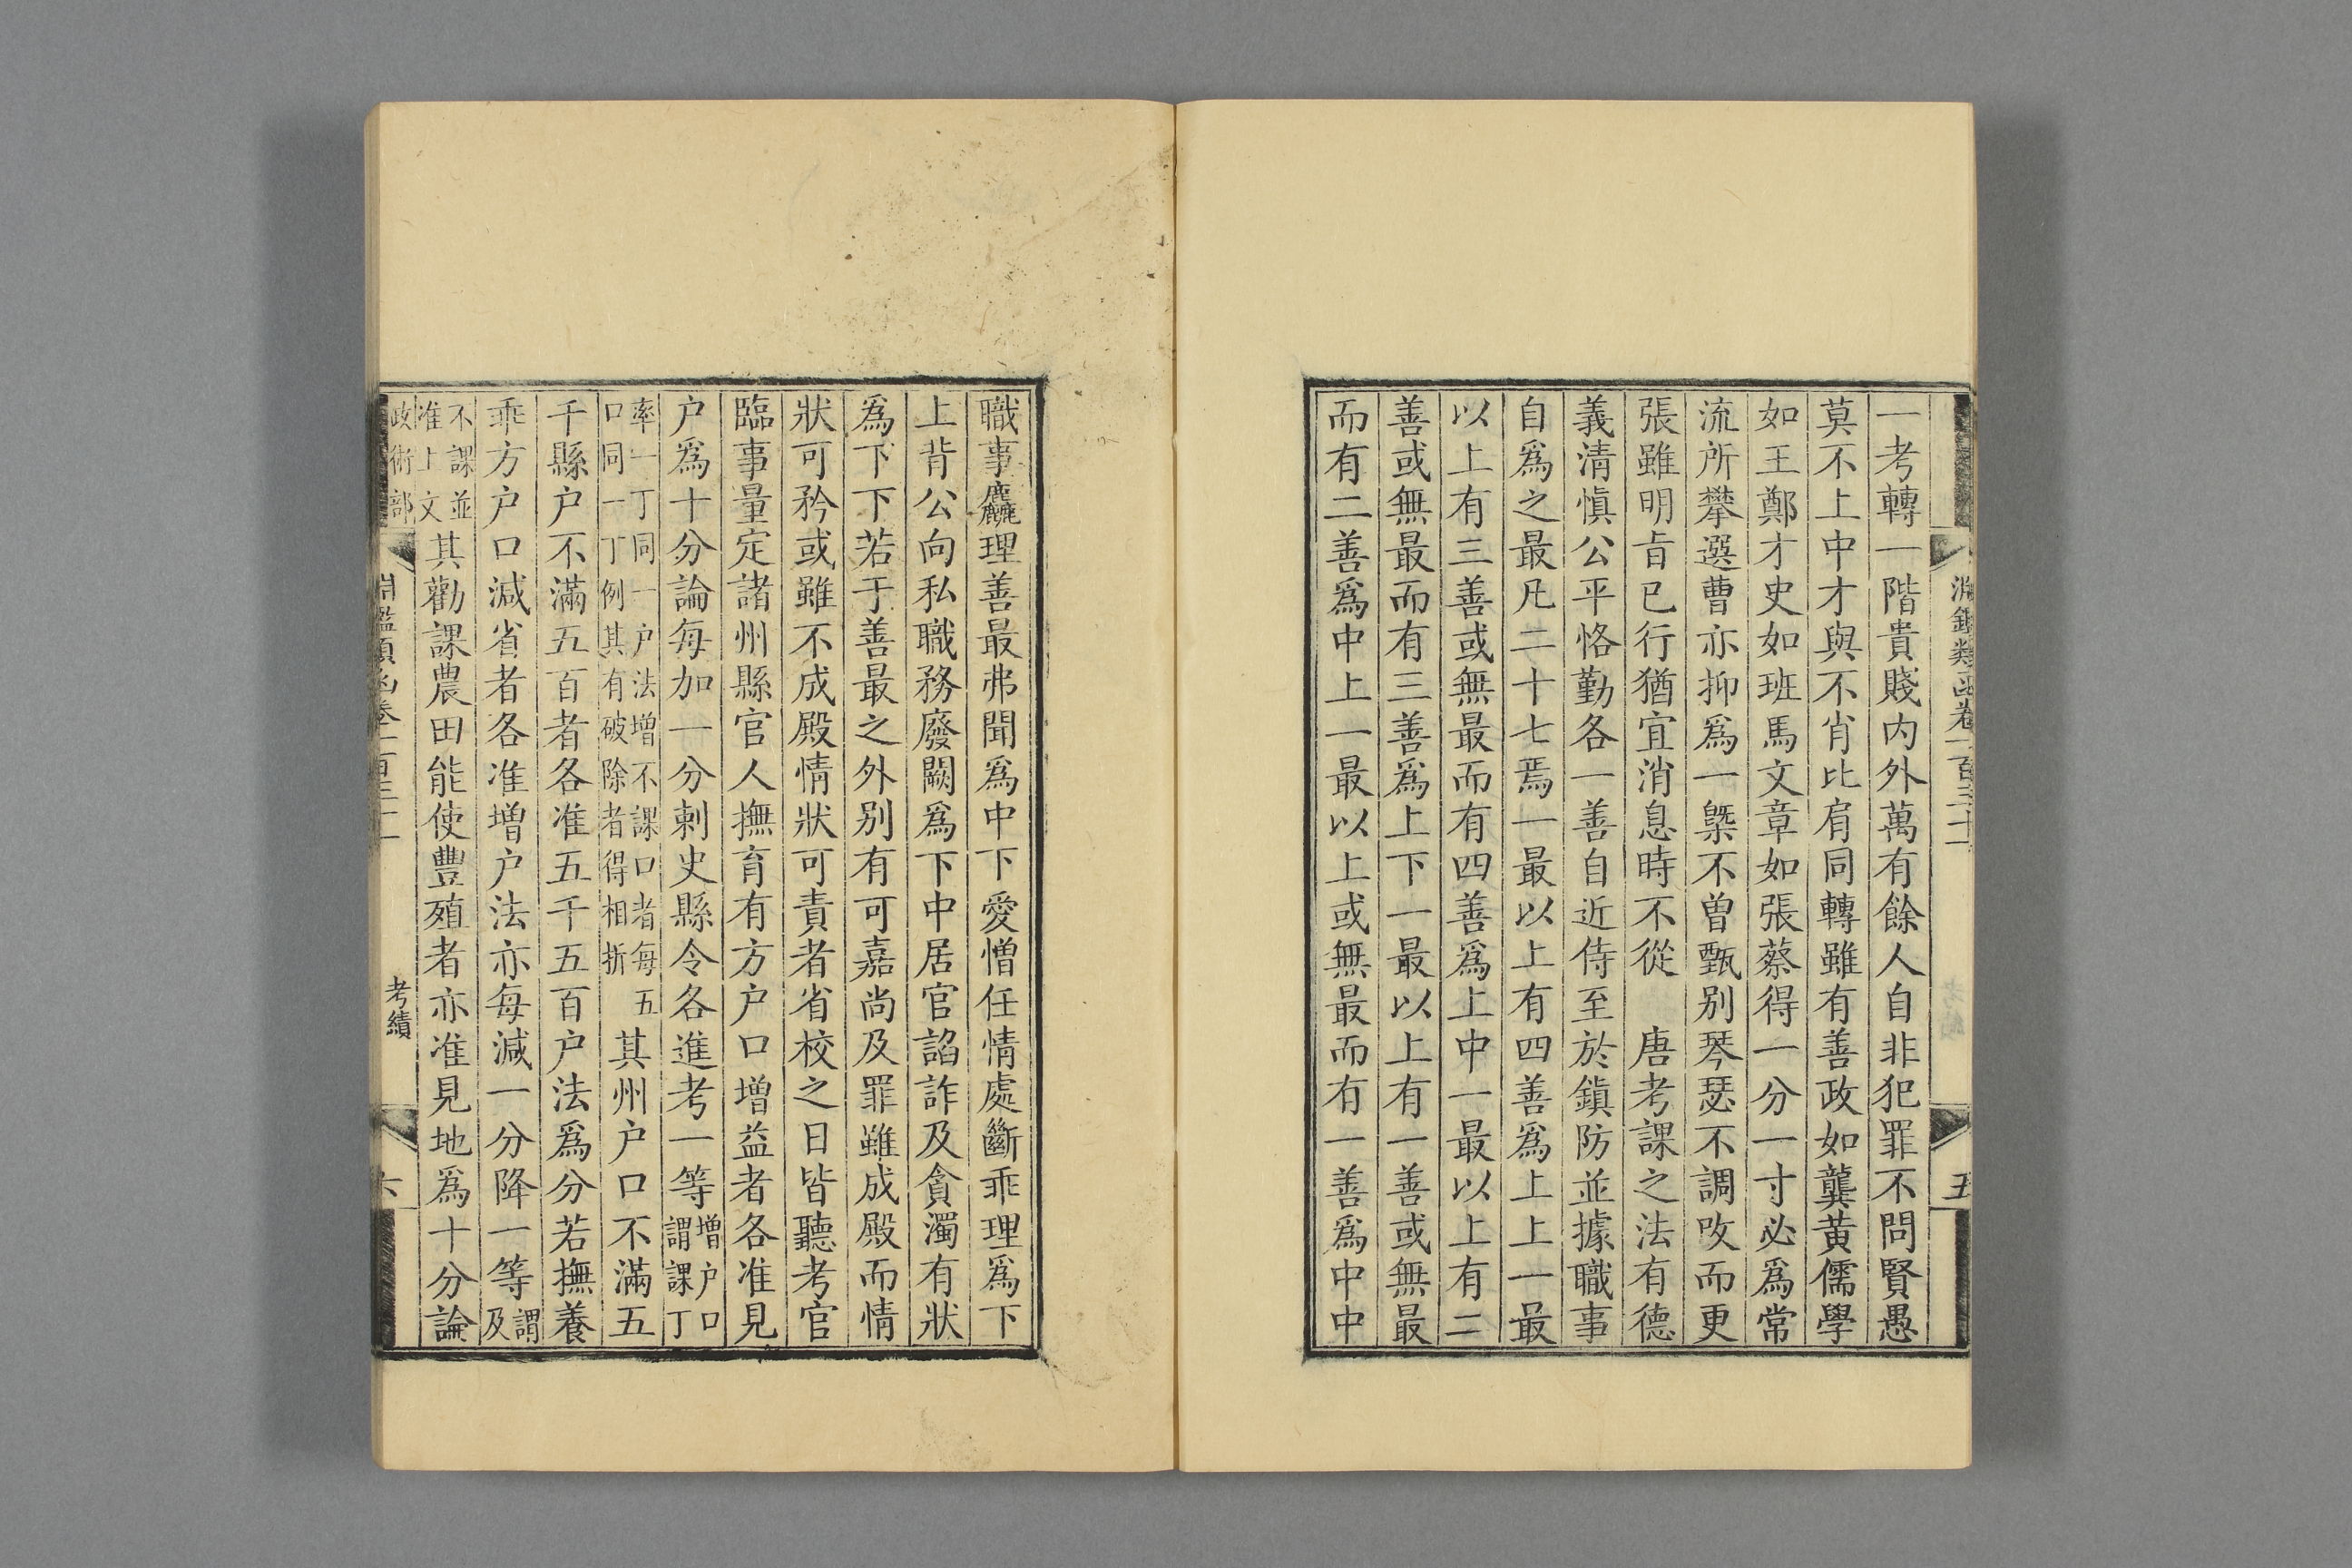 淵鑑類函卷一百三十一
五
一考轉一階貴賤内外萬有餘人自非犯罪不問賢愚
莫不上中才與不肖比肩同轉雖有善政如龔黄儒學
如王鄭才史如班馬文章如張蔡得一分一寸必爲常
流所攀選曹亦抑爲一槩不曾甄别琴瑟不調攺而更
張雖明㫖已行猶宜消息時不從　唐考課之法有德
義清慎公平恪勤各一善自近侍至於鎮防並據職事
自爲之最凡二十七焉一最以上有四善爲上上一最
以上有三善或無最而有四善爲上中一最以上有二
善或無最而有三善爲上下一最以上有一善或無最
而有二善爲中上一最以上或無最而有一善爲中中
職事麤理善最弗聞爲中下愛憎任情處斷乖理爲下
上背公向私職務廢闕爲下中居官諂詐及貪濁有狀
爲下下若于善最之外别有可嘉尚及罪雖成殿而情
狀可矜或雖不成殿情狀可責者省校之日皆聽考官
臨事量定諸州縣官人撫育有方户口增益者各准見
户爲十分論每加一分刺史縣令各進考一等增户口謂課丁
率一丁同一户法增不課口者每五口同一丁例其有破除者得相折其州户口不滿五
千縣户不滿五百者各准五千五百户法爲分若撫養
乖方户口減省者各准增户法亦每減一分降一等謂及
不課並准上文其勸課農田能使豐殖者亦准見地爲十分論
政術部
淵鑑類函卷一百三十一
考績
六